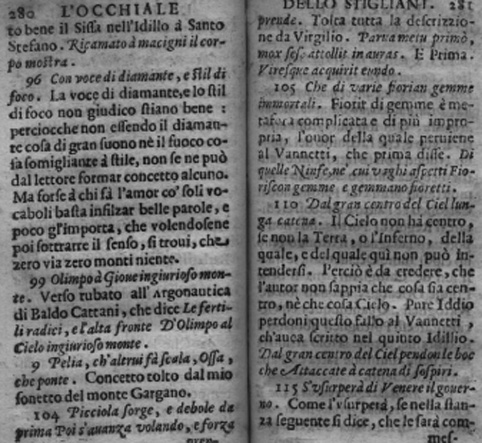 280 L'OCCHIALE
to bene il Sissa nell'Idillo à Santo
Stefano. Ricamato à macigni il cor-
po mostra.
96 Con voce di diamante, e stil di
foco. La voce di diamante, e lo stil
di foco non giudico stiano bene :
perciocche non essendo il diaman-
te cosa di gran suono nè il fuoco co-
sa somigliante à stile, non se ne può
dal lettore formar concetto alcuno.
Ma forse à chi fà l'amor co' soli vo-
caboli basta infilzar belle parole, e
poco gl'importa, che volendosene
poi sottrarre il senso, si troui, che
zero via zero monti niente.
99 Olimpo à Gioue ingiurioso mon-
te. Verso rubato all' Argonautica
di Baldo Cattani, che dice Le ferti-
li radici, e l'alta fronte D'Olimpo al
Cielo ingiurioso monte.
9 Pelia, ch'altrui fà scala, Ossa,
che ponte. Concetto tolto dal mio
sonetto del monte Gargano.
104 Picciola sorge, e debole da
prima Poi s'auanza volando, e forza
pren-
DELLO STIGLIANI. 281
prende. Tolta tutta la descrizzio-
ne da Virgilio. Parua metu primò,
mox sese attollit in auras. E Prima.
Viresque acquirit eundo.
105 Che di varie fiorian gemme
immortali. Fiorir di gemme è me-
tafora complicata e di più impro-
pria, l'onor della quale peruiene
al Vannetti, che prima disse. Di
quelle Ninfe, ne' cui vaghi aspetti Fio-
riscon gemme, e gemmano fioretti.
110 Dal gran centro del Ciel lun-
ga catena. Il Cielo non hà centro,
se non la Terra, o l'Inferno, della
quale, e del quale quì non può in-
tendersi. Perciò è da credere, che
l'autor non sappia che cosa sia cen-
tro, nè che cosa Cielo. Pure Iddio
perdoni questo fallo al Vannetti,
ch'auea scritto nel quinto Idillio.
Dal gran centro del Ciel pendon le boc
che Attaccate à catena di sospiri.
115 S'vsurperà di Venere il gouer-
no. Come l'vsurperà, se nella stan-
za seguente si dice, che le sarà com-
mes-